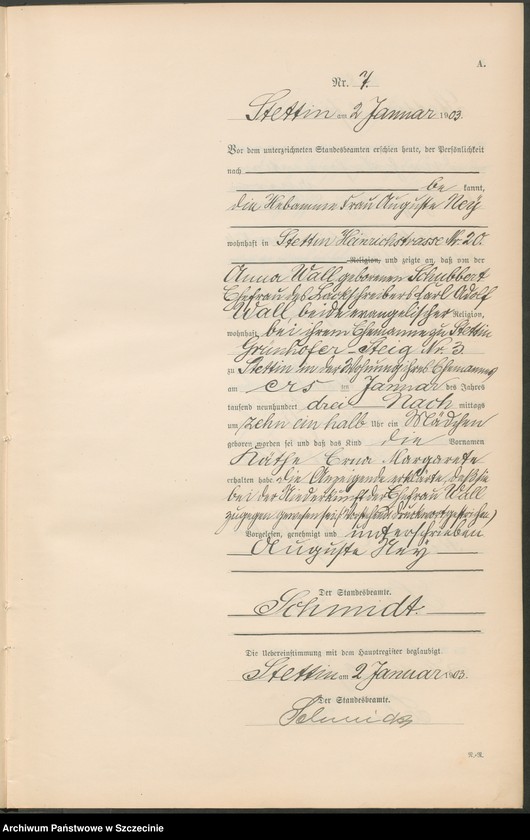 A.
Nr. 7.
Stettin am 2 Januar 1903.
Vor dem unterzeichneten Standesbeamten erschien heute, der Persönlichkeit
nach
be kannt,
die Hebamme Frau Auguste Ney
wohnhaft in Stettin Heinrichstrasse Nr. 20.
Religion, und zeigte an, daß von der
Anna Wall geborenen Schubbert
Ehefrau des Lackschreibers Karl Adolf
Wall beide evangelischer Religion,
wohnhaft bei ihrem Ehemanne zu Stettin
Grünhofer-Steig Nr. 3
zu Stettin in der Wohnung ihres Ehemannes
am ers ten Januar des Jahres
tausend neunhundert drei Nach mittags
um zehn ein halb Uhr ein Mädchen
geboren worden sei und daß das Kind die Vornamen
Käthe Erna Margarete
erhalten habe. Die Anzeigende erklärte, daß sie
bei der Niederkunft der Ehefrau Wall
zugegen gewesen sei. (Vorstehend Druckwort gestrichen)
Vorgelesen, genehmigt und unterschrieben
Auguste Ney
Der Standesbeamte.
Schmidt.
Die Uebereinstimmung mit dem Hauptregister beglaubigt
Stettin am 2 Januar 1903.
Der Standesbeamte.
Schmidt
Archiwum Państwowe w Szczecinie